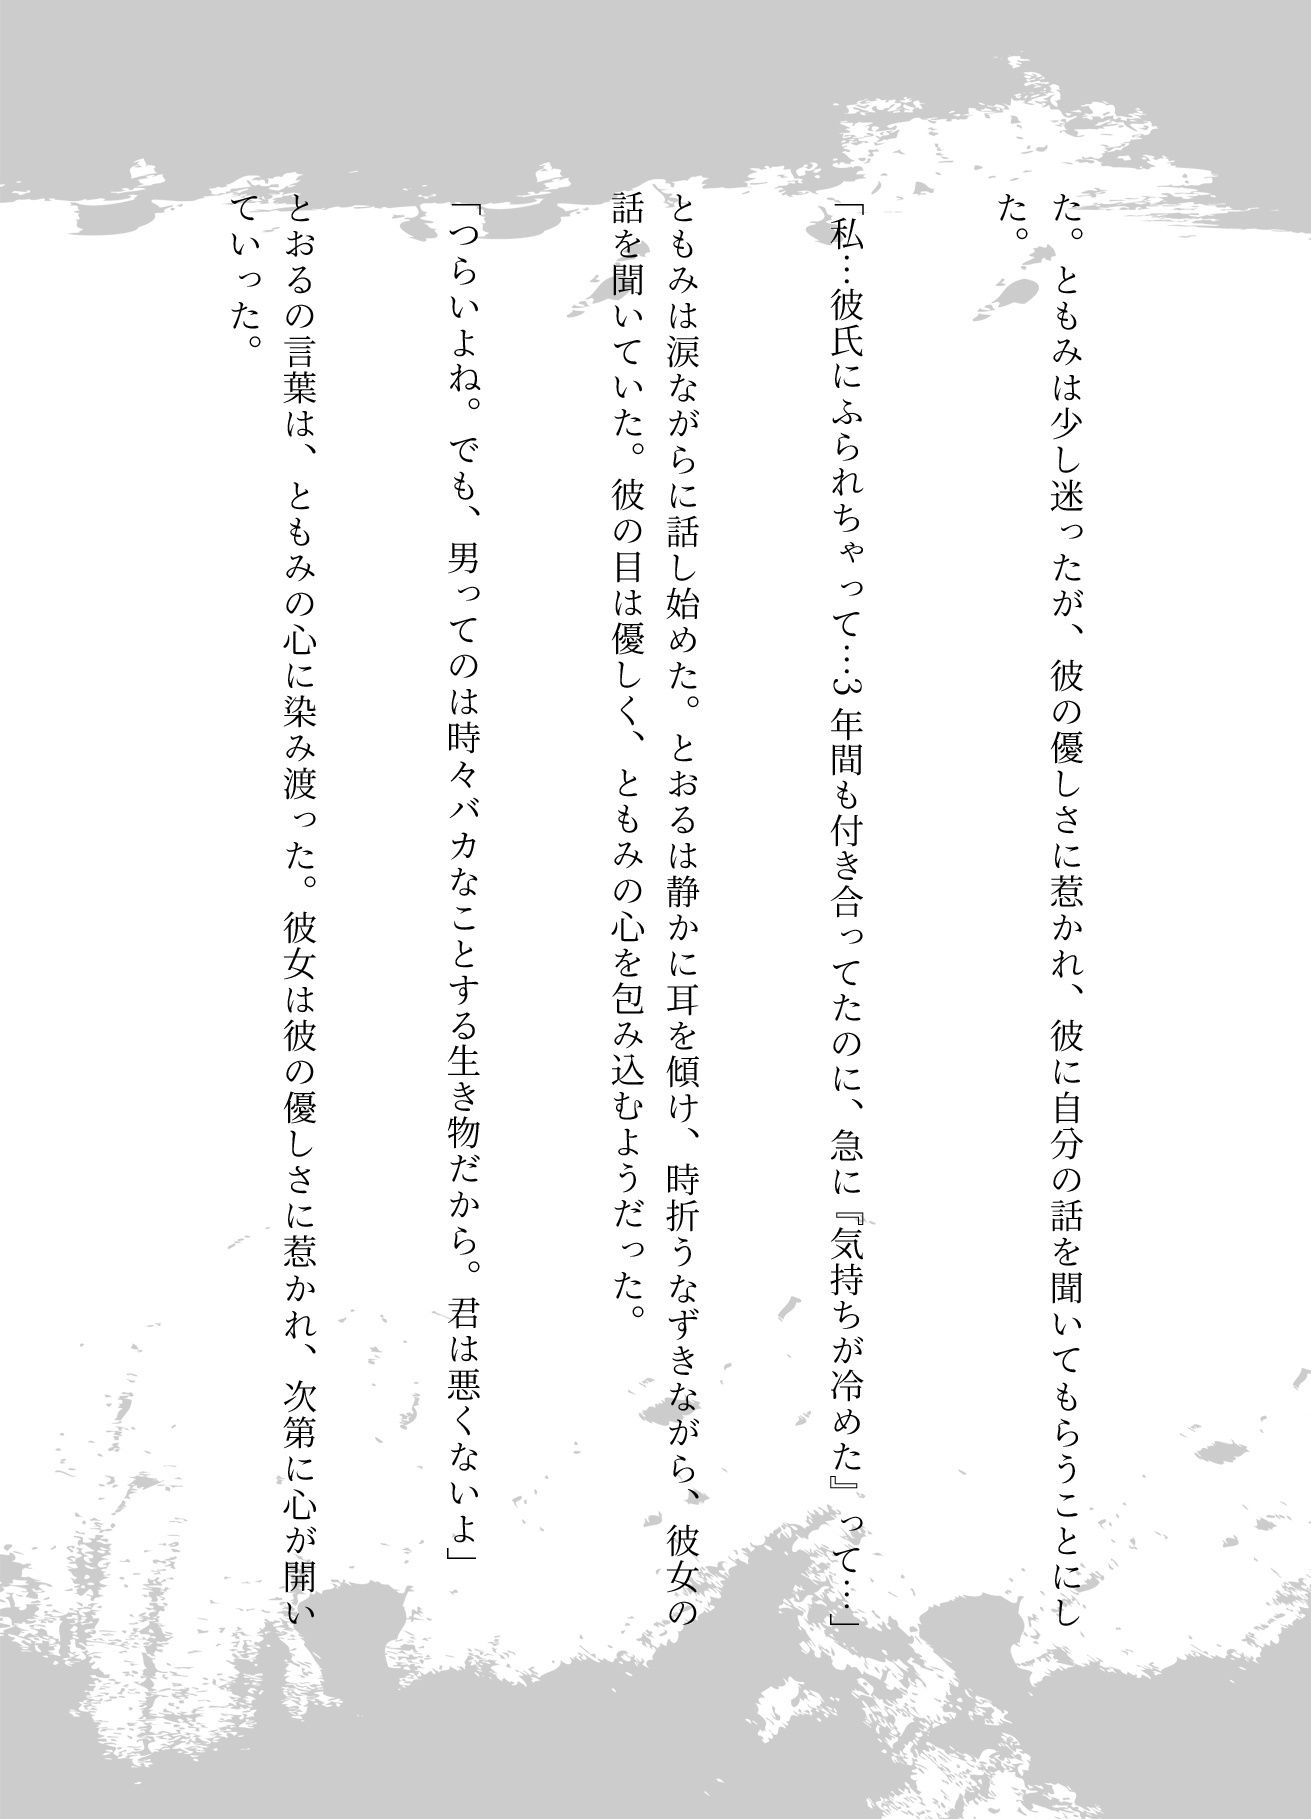 た。ともみは少し迷ったが、彼の優しさに惹かれ、彼に自分の話を聞いてもらうことにし
た。
「私…彼氏にふられちゃって…3年間も付き合ってたのに、急に『気持ちが冷めた』って…」
ともみは涙ながらに話し始めた。とおるは静かに耳を傾け、時折うなずきながら、彼女の
話を聞いていた。彼の目は優しく、ともみの心を包み込むようだった。
「つらいよね。でも、男ってのは時々バカなことする生き物だから。君は悪くないよ」
とおるの言葉は、ともみの心に染み渡った。彼女は彼の優しさに惹かれ、次第に心が開い
ていった。